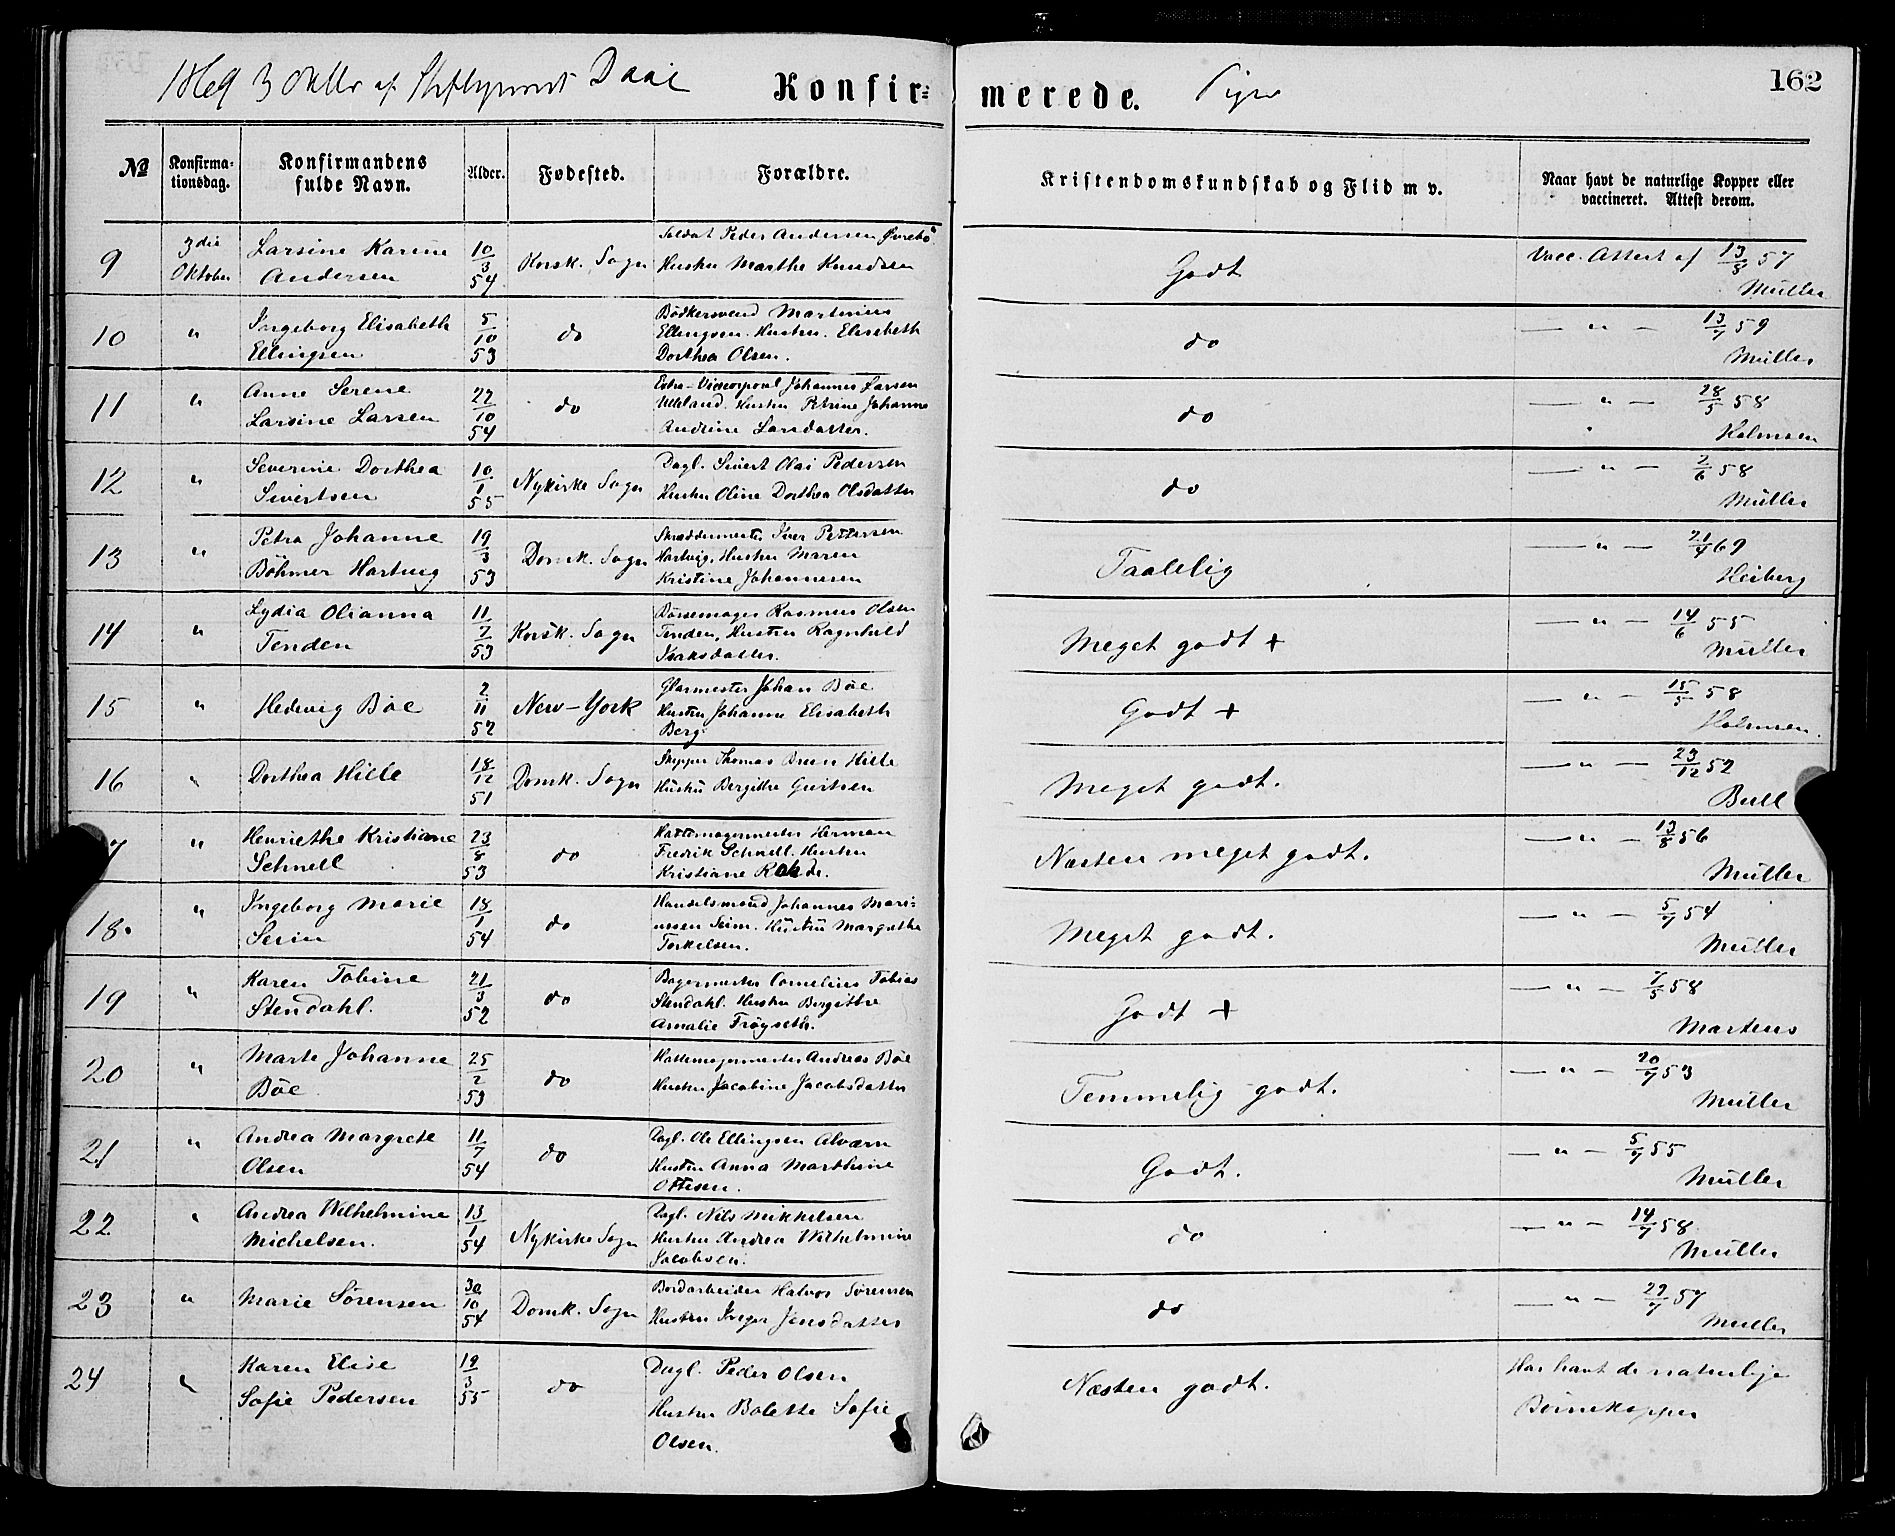 1869 3 Oktbr af Stiftsprovst Daae
Konfir=
merede.
Piger
162
No
Konfirma-
tionsdag.
Konfirmandens
fulde Navn.
Alder.
Fødested.
Forældre.
Kristendomskundskab og Flid m v.
Naar havt de naturlige Kopper eller
vaccineret. Attest derom.
9
3die
Oktober
Larsine Karine
Andersen
10/3 54
Korsk. Sogn
Soldat Peder Andersen
Hustru Marthe Knudsen
Godt
Vacc. Attest af 13/8 57
Müller
10
"
Ingeborg Elisabeth
Ellingsen
5/10 53
do
Bødkersvend Martinus
Ellingsen. Hustru. Elisabeth
Dorthea Olsen.
do
— " — 13/7 59
Müller
11
"
Anne Serene
Larsine Larsen
22/10 54
do
Johannes Larsen
Hustru Petrine Johanne
Andrine Larsdatter.
do
— " — 28/5 58
Holmsen
12
"
Severine Dorthea
Sivertsen
10/1 55
Nykirke Sogn
Dagl. Sivert Olai Pedersen
Hustru Oline Dorthea Olsdatter
do
— " — 2/6 58
Müller
13
"
Petra Johanne
Böhmer Hartvig
19/3 53
Domk. Sogn
Skræddermester Iver Pettersen
Hartvig, Hustru Maren
Kristine Johannesen
Taalelig
— " — 21/4 69
Heiberg
14
"
Lydia Olianna
Tenden
11/7 53
Korsk. Sogn
Rasmus Olsen
Tenden, Hustru Ragnhild
Isaksdatter.
Meget godt +
— " — 14/6 55
Müller
15
"
Hedevig Böe
2/11 52
New-York
Glarmester Johan Böe
Hustru Johanne Elisabeth
Berg
Godt +
— " — 15/5 58
Holmsen.
16
"
Dorthea Hille
18/12 51
Domk. Sogn
Skipper Thomas Bruun Hille
Hustru Bergithe
Meget godt.
— " — 23/12 52
Bull
7
"
Henriethe Kristiane
Schnell
23/8 53
do
Hattemagermester Herman
Fredrik Schnell. Hustru
Kristiane Rohde.
Næsten meget godt.
— " — 13/8 56
Müller
18.
"
Ingeborg Marie
Seim
18/1 54
do
Handelsmand Johannes Mari=
nesen Seim. Hustru Margrethe
Torkelsen.
Meget godt.
— " — 5/7 54
Müller
19
"
Karen Tobine
Stendahl.
21/3 52
do
Bagermester Cornelius Tobias
Stendahl. Hustru Bergitthe
Amalie Trøgseth.
Godt +
— " — 7/5 58
Martens
20
"
Marte Johanne
Böe
25/2 53
do
Hattemagermester Andreas Böe
Hustru Jacobine Jacobsdatter
Temmelig godt.
— " — 20/7 53
Müller
21
"
Andrea Margrete
Olsen
11/7 54
do
Dagl. Ole Ellingsen Alværn
Hustru Anna Marthine
Ottesen.
Godt.
— " — 5/7 55
Müller
22
"
Andrea Wilhelmine
Michelsen.
13/1 54
Nykirke Sogn
Dagl. Nils Mikkelsen
Hustru Andrea Wilhelmine
Jacobsen.
do
— " — 14/7 58
Müller
23
"
Marie Sörensen
30/10 54
Domk. Sogn
Bordarbeider Halvor Sörensen
Hustru Inger Jensdatter
do
— " — 29/7 57
Müller
24
"
Karen Elise
Sofie Pedersen
19/3 55
do
Dagl. Peder Olsen
Hustru Bolette Sofie
Olsen.
Næsten godt.
Har havt de naturlige
Børnekopper